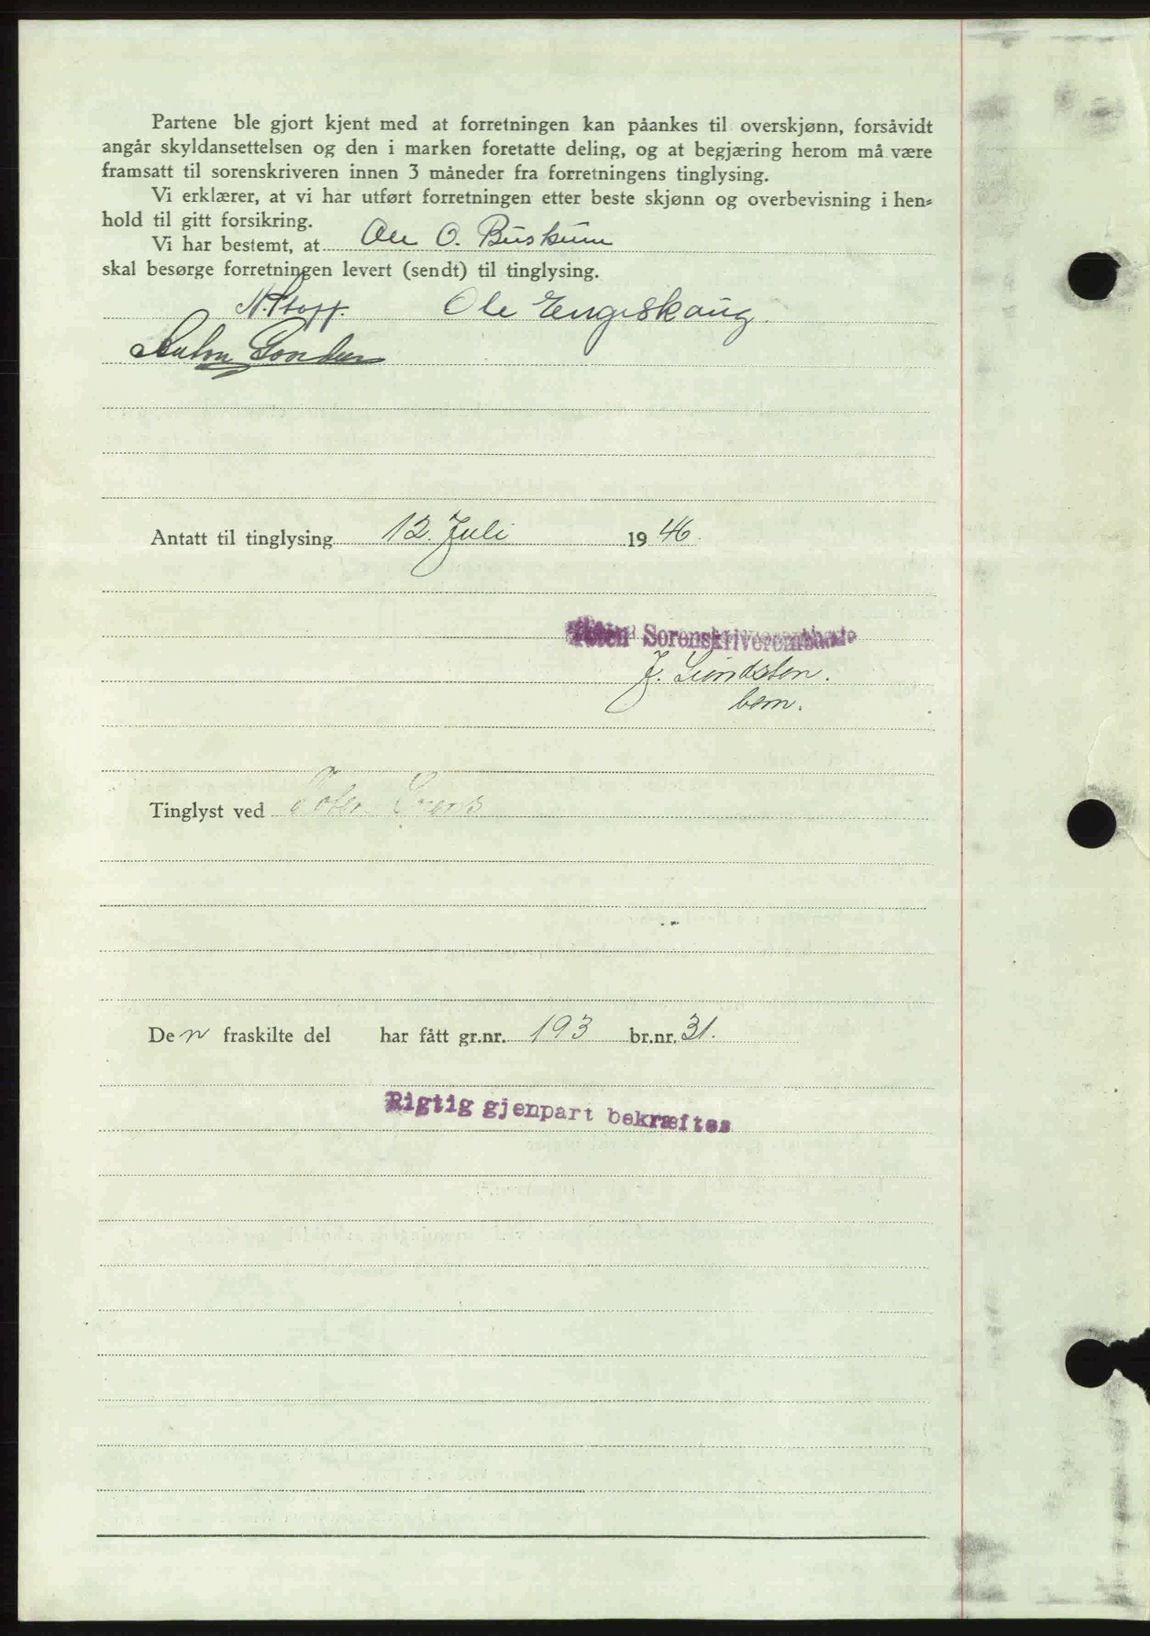 Partene ble gjort kjent med at forretningen kan påankes til overskjønn, forsåvidt
angår skyldansettelsen og den i marken foretatte deling, og at begjæring herom må være
framsatt til sorenskriveren innen 3 måneder fra forretningens tinglysing.
Vi erklærer, at vi har utført forretningen etter beste skjønn og overbevisning i hen=
hold til gitt forsikring.
Vi har bestemt, at Ole O. Buskum
skal besørge forretningen levert (sendt) til tinglysing.
Ole Engeskaug
Antatt til tinglysing 12. Juli 1946.
Toten Sorenskriverembede
J. Lundsten.
bem.
Tinglyst ved Toten
Den fraskilte del har fått gr.nr. 193 br.nr. 31.
Rigtig gjenpart bekræftes